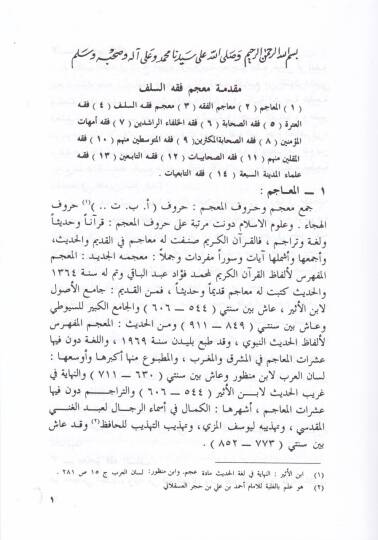 بسم الله الرحمن الرحيم وصلى الله على سيدنا محمد وعلى آله وصحبه وسلم
مقدمة معجم فقه السلف
( ١ ) المعاجم ( ٢ ) معاجم الفقه ( ٣ ) معجم فقه السلف ( ٤ ) فقه
العترة ( ٥ ) فقه الصحابة ( ٦ ) فقه الخلفاء الراشدين ( ٧ ) فقه أمهات
المؤمنين ( ٨ ) فقه الصحابة المكثرين ( ٩ ) فقه المتوسطين منهم ( ١٠ ) فقه
المقلين منهم ( ١١ ) فقه الصحابيات ( ١٢ ) فقه التابعين ( ١٣ ) فقه
علماء المدينة السبعة ( ١٤ ) فقه التابعيات .
١ ــ المعاجم :
جمع معجم وحروف المعجم : حروف ( أ. ب. ت .. )(١) حروف
الهجاء . وعلوم الاسلام دونت مرتبة على حروف المعجم : قرآناً وحديثاً
ولغة وتراجم ، فالقرآن الكريم صنفت له معاجم في القديم والحديث،
وأجمعها وأشملها آيات وسوراً مفردات وجملاً : معجمه الجديد : المعجم
المفهرس لألفاظ القرآن الكريم لمحمد فؤاد عبد الباقي وتم له سنة ١٣٦٤
والحديث كتبت له معاجم قديماً وحديثاً ، فمن القديم : جامع الأصول
لابن الأثير ، عاش بين سنتي ( ٥٤٤ ــ ٦٠٦ ) والجامع الكبير للسيوطي
وعاش بين سنتي ( ٨٤٩ ــ ٩١١ ) ومن الحديث : المعجم المفهرس
لألفاظ الحديث النبوي ، وقد طبع بليدن سنة ١٩٦٩ ، واللغة دون فيها
عشرات المعاجم في المشرق والمغرب ، والمطبوع منها أكبرها وأوسعها :
لسان العرب لابن منظور وعاش بين سنتي ( ٦٣٠ ــ ٧١١ ) والنهاية في
غريب الحديث لابن الأثير ( ٥٤٤ ــ ٦٠٦ ) والتراجم دون فيها
عشرات المعاجم ، أشهرها : الكمال في أسماء الرجال لعبد الغني
المقدسي ، وتهذيبه ليوسف المزي، وتهذيب التهذيب للحافظ(٢) وقد عاش
بين سنتي ( ٧٧٣ ــ ٨٥٢ ) .
(١) ابن الأثير : النهاية في لغة الحديث مادة عجم. وابن منظور: لسان العرب ج ١٥ ص ٢٨١ .
(٢) هو علم بالغلبة للامام أحمد بن علي بن حجر العسقلاني
١